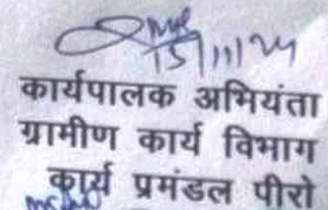 15/11/24
कार्यपालक अभियंता
ग्रामीण कार्य विभाग
कार्य प्रमंडल पीरो